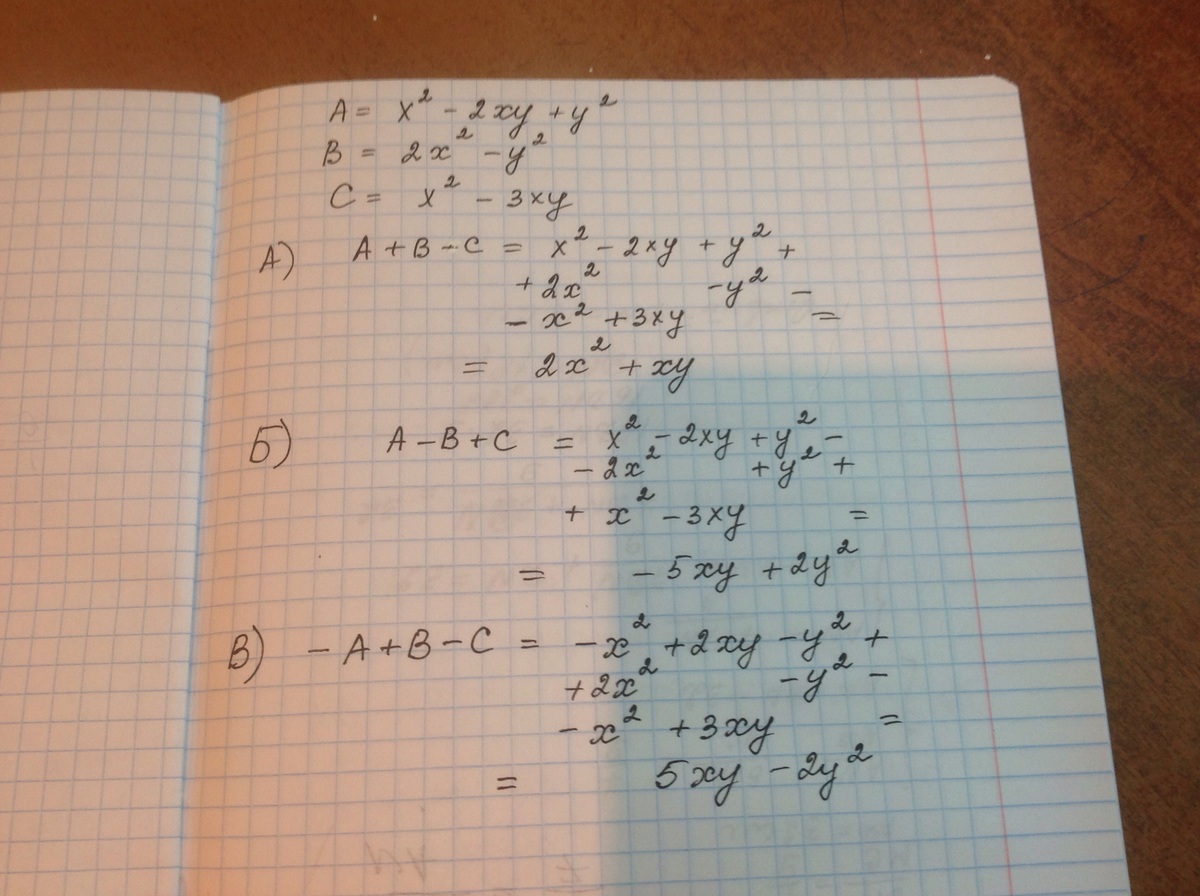 A = x² - 2xy + y²
B = 2x² - y²
C = x² - 3xy
А) A + B - C = x² - 2xy + y² +
+ 2x² - y² -
- x² + 3xy =
= 2x² + xy
Б) A - B + C = x² - 2xy + y² -
- 2x² + y² +
+ x² - 3xy =
= - 5xy + 2y²
В) - A + B - C = - x² + 2xy - y² +
+ 2x² - y² -
- x² + 3xy =
= 5xy - 2y²